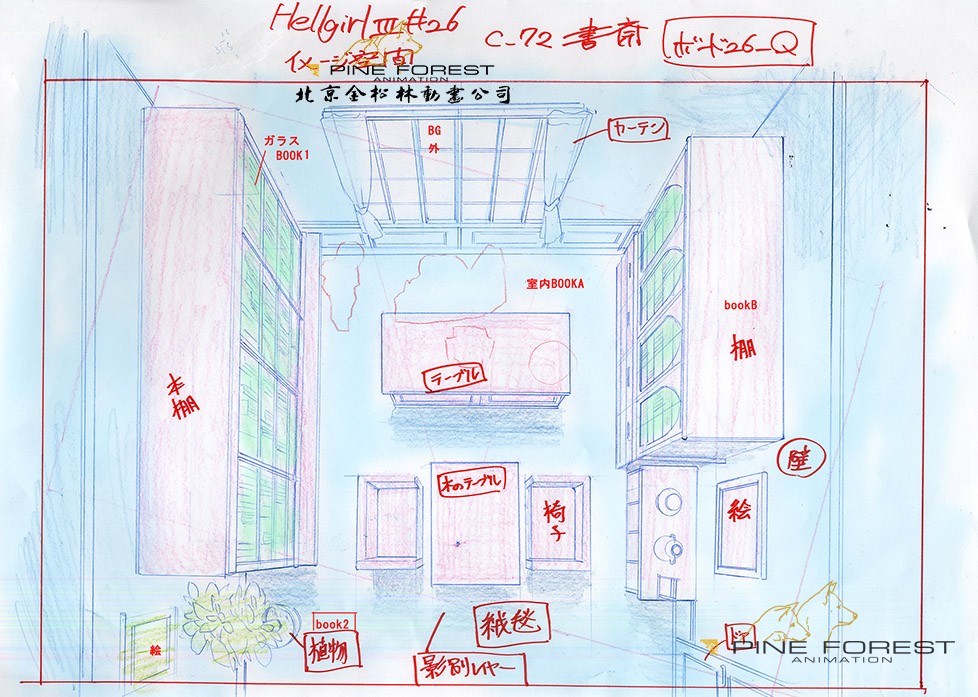 Hellgirl III #26
C-72 書斎
ボード26-Q
イメージ空間
PINE FOREST
ANIMATION
北京金松林動畫公司
ガラス
BOOK1
BG
外
カーテン
室内BOOKA
bookB
棚
本棚
テーブル
木のテーブル
椅子
絵
book2
植物
絵
絨毯
影別レヤー
ドア
PINE FOREST
ANIMATION